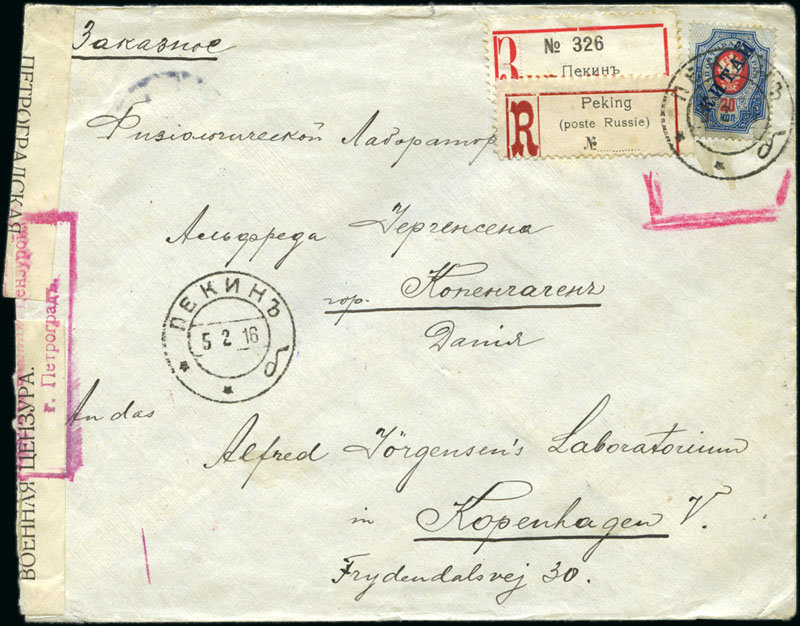 Заказное
№ 326
Пекинъ
R
Peking
(poste Russie)
№
КИТАЙ
20
КОП
Физіологической Лаборатор
Альфреда Іергенсена
гор. Копенгагенъ
Данія
ПЕКИНЪ
5 2 16
An das
Alfred Jörgensen's Laboratorium
in Kopenhagen V.
Frydendalsvej 30.
ПЕТРОГРАДСКАЯ
ВОЕННАЯ ЦЕНЗУРА.
г. Петроградъ.